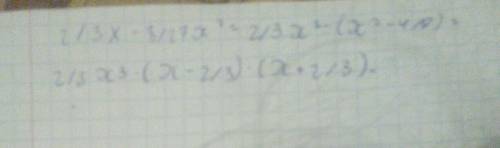 2/3x - 8/27x³ = 2/3x³ · (x² - 4/9) =
2/3x³ · (x - 2/3) · (x + 2/3).